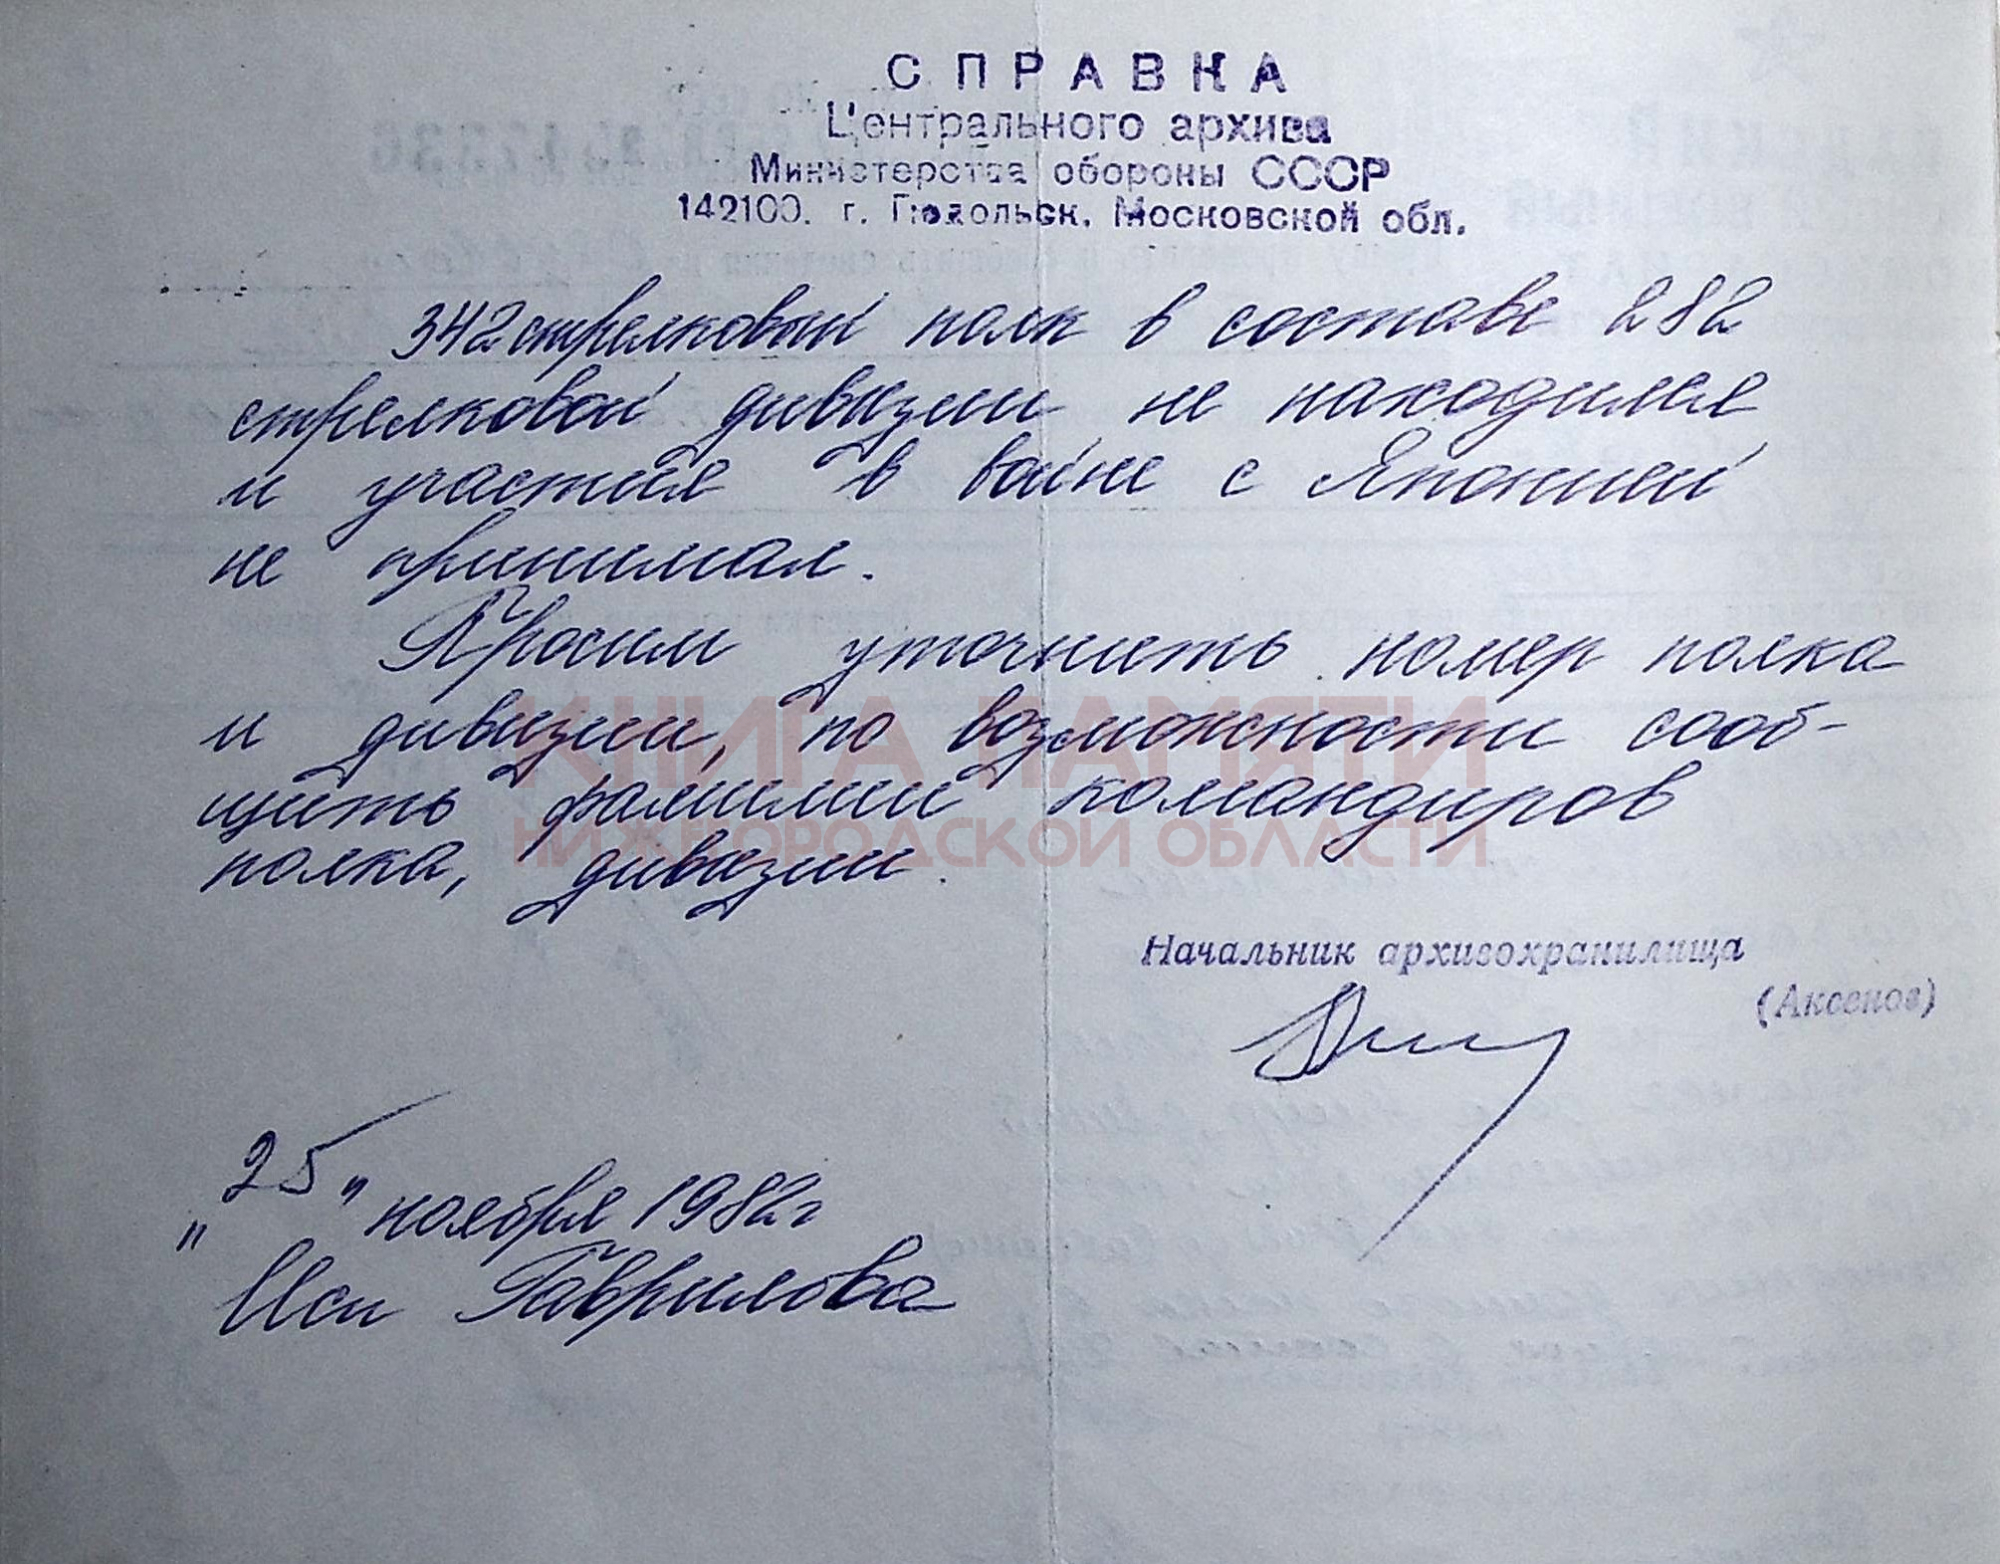 СПРАВКА
Центрального архива
Министерства обороны СССР
142100. г. Подольск, Московской обл.
342 стрелковый полк в составе 282
стрелковой дивизии не находился
и участия в войне с Японией
не принимал.
Просим уточнить номер полка
и дивизии, по возможности сооб-
щить фамилии командиров
полка, дивизии.
КНИГА ПАМЯТИ
НИЖЕГОРОДСКОЙ ОБЛАСТИ
Начальник архивохранилища
(Аксенов)
"25" ноября 1982г
Исп Гаврилова